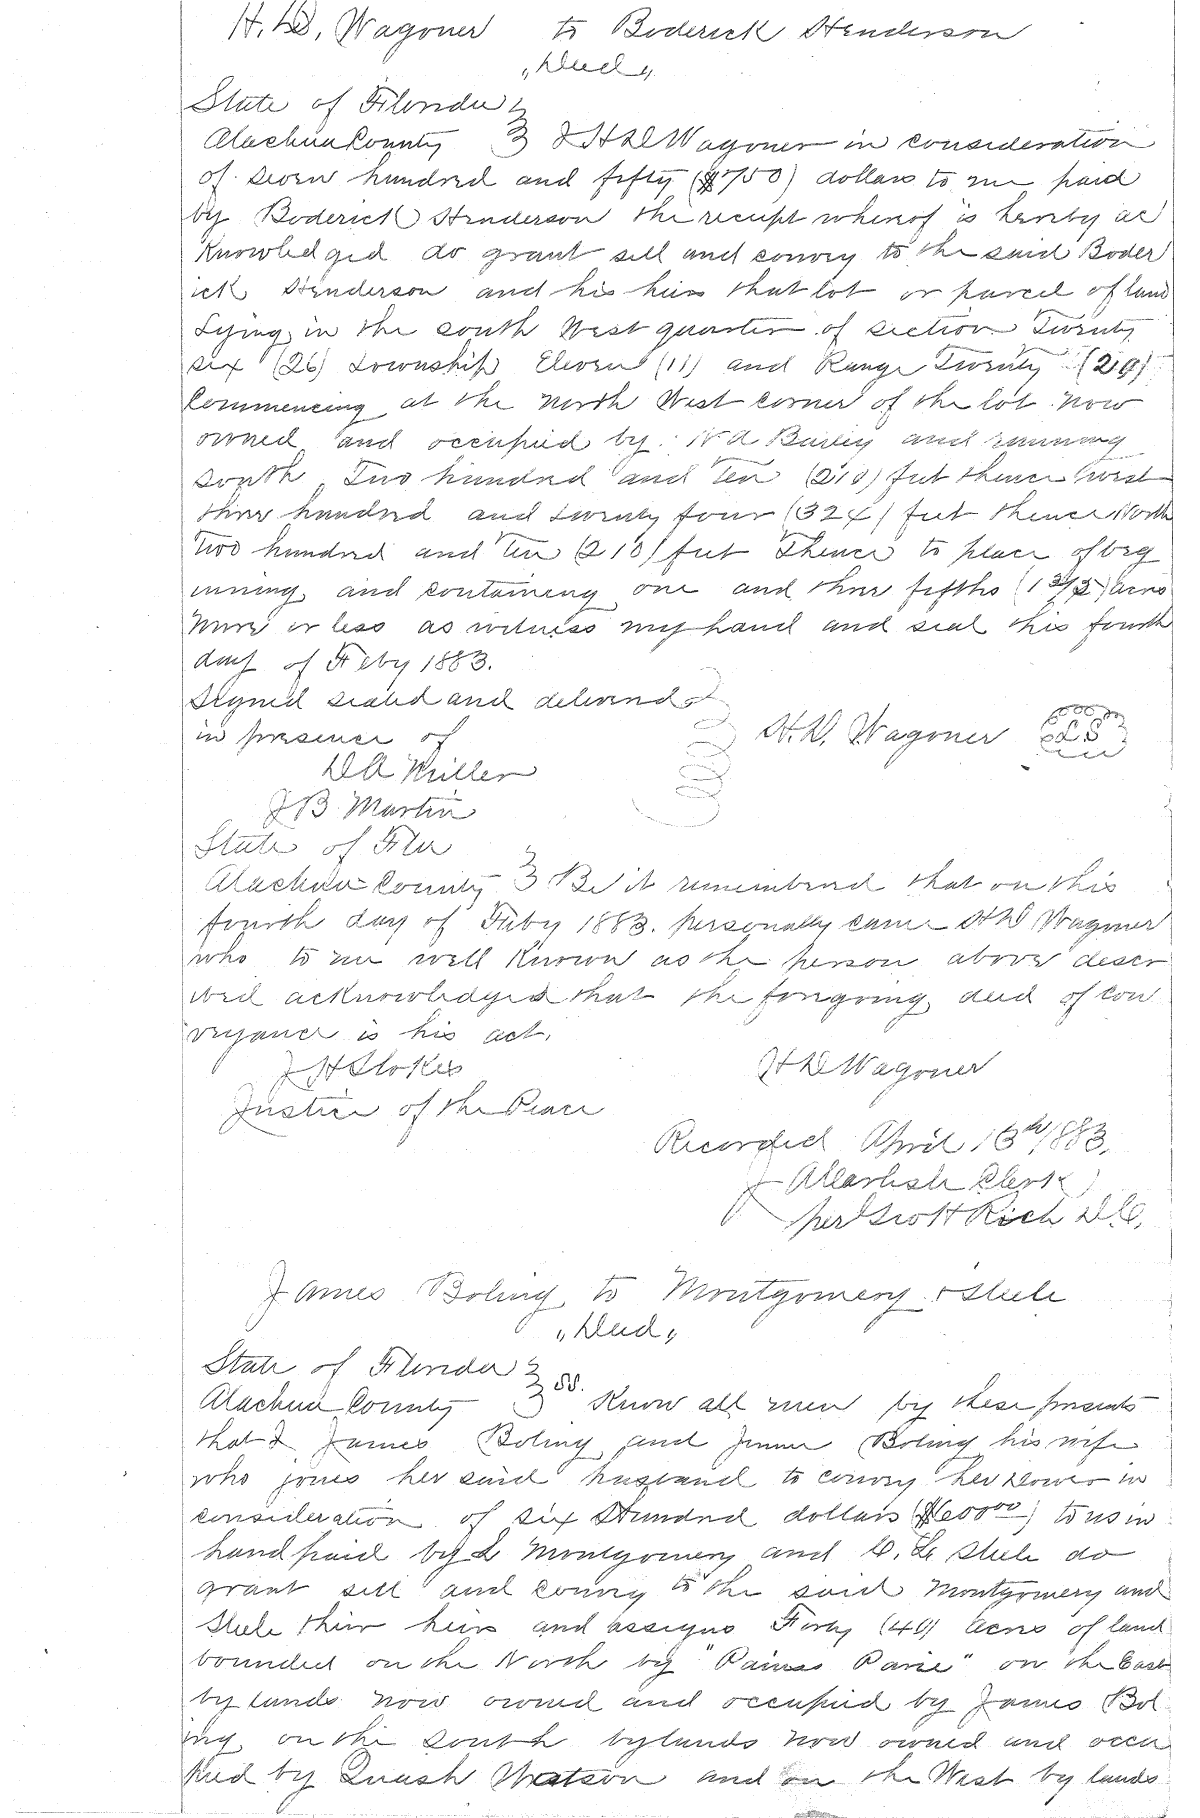 H. D. Wagoner to Boderick Henderson
"Deed"
State of Florida
Alachua County } I H D Wagoner in consideration
of seven hundred and fifty ($750) dollars to me paid
by Boderick Henderson the receipt whereof is hereby ac
knowledged do grant sell and convey to the said Boder
ick Henderson and his heirs that lot or parcel of land
Lying in the south West quarter of section Twenty
six (26) Township Eleven (11) and Range Twenty (20)
Commencing at the North West corner of the lot now
owned and occupied by Bailey and running
south Two hundred and Ten (210) feet thence west
three hundred and twenty four (324) feet thence North
Two hundred and Ten (210) feet Thence to place of beg
inning and containing one and three fifths (1 3/5) acres
More or less as witness my hand and seal this fourth
day of Feby 1883.
Signed sealed and delivered
in presence of
H. D. Wagoner L S
D A Miller
J B Martin
State of Fla
Alachua County } Be it remembered that on this
fourth day of Feby 1883. personally came H D Wagoner
who to me well known as the person above descr
ibed acknowledged that the foregoing deed of con
veyance is his act.
J H Stokes H D Wagoner
Justice of the Peace
Recorded April 13th 1883.
J A Carlisle Clerk
per Scott Rich D.C.
James Boling to Montgomery & Steele
"Deed"
State of Florida
Alachua County } SS. Know all men by these presents
that I James Boling and Boling his wife
who joins her said husband to convey her dower in
consideration of six Hundred dollars ($600 00) to us in
hand paid by L Montgomery and Steele do
grant sell and convey to the said Montgomery and
Steele their heirs and assigns Forty (40) acres of land
bounded on the North by "Paines Parie" on the East
by lands now owned and occupied by James Bol
ing, on the South by lands now owned and occu
pied by Quash Watson and on the West by lands